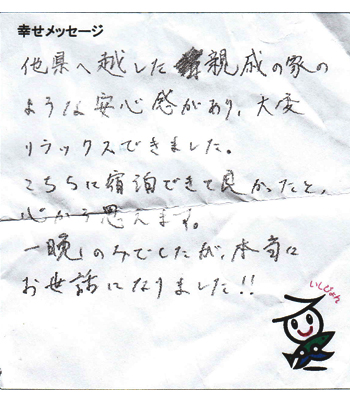 幸せメッセージ
他県へ越した親戚の家の
ような安心感があり、大変
リラックスできました。
こちらに宿泊できて良かったと、
心から思えます。
一晩のみでしたが、本当に
お世話になりました!!
いしぴょん